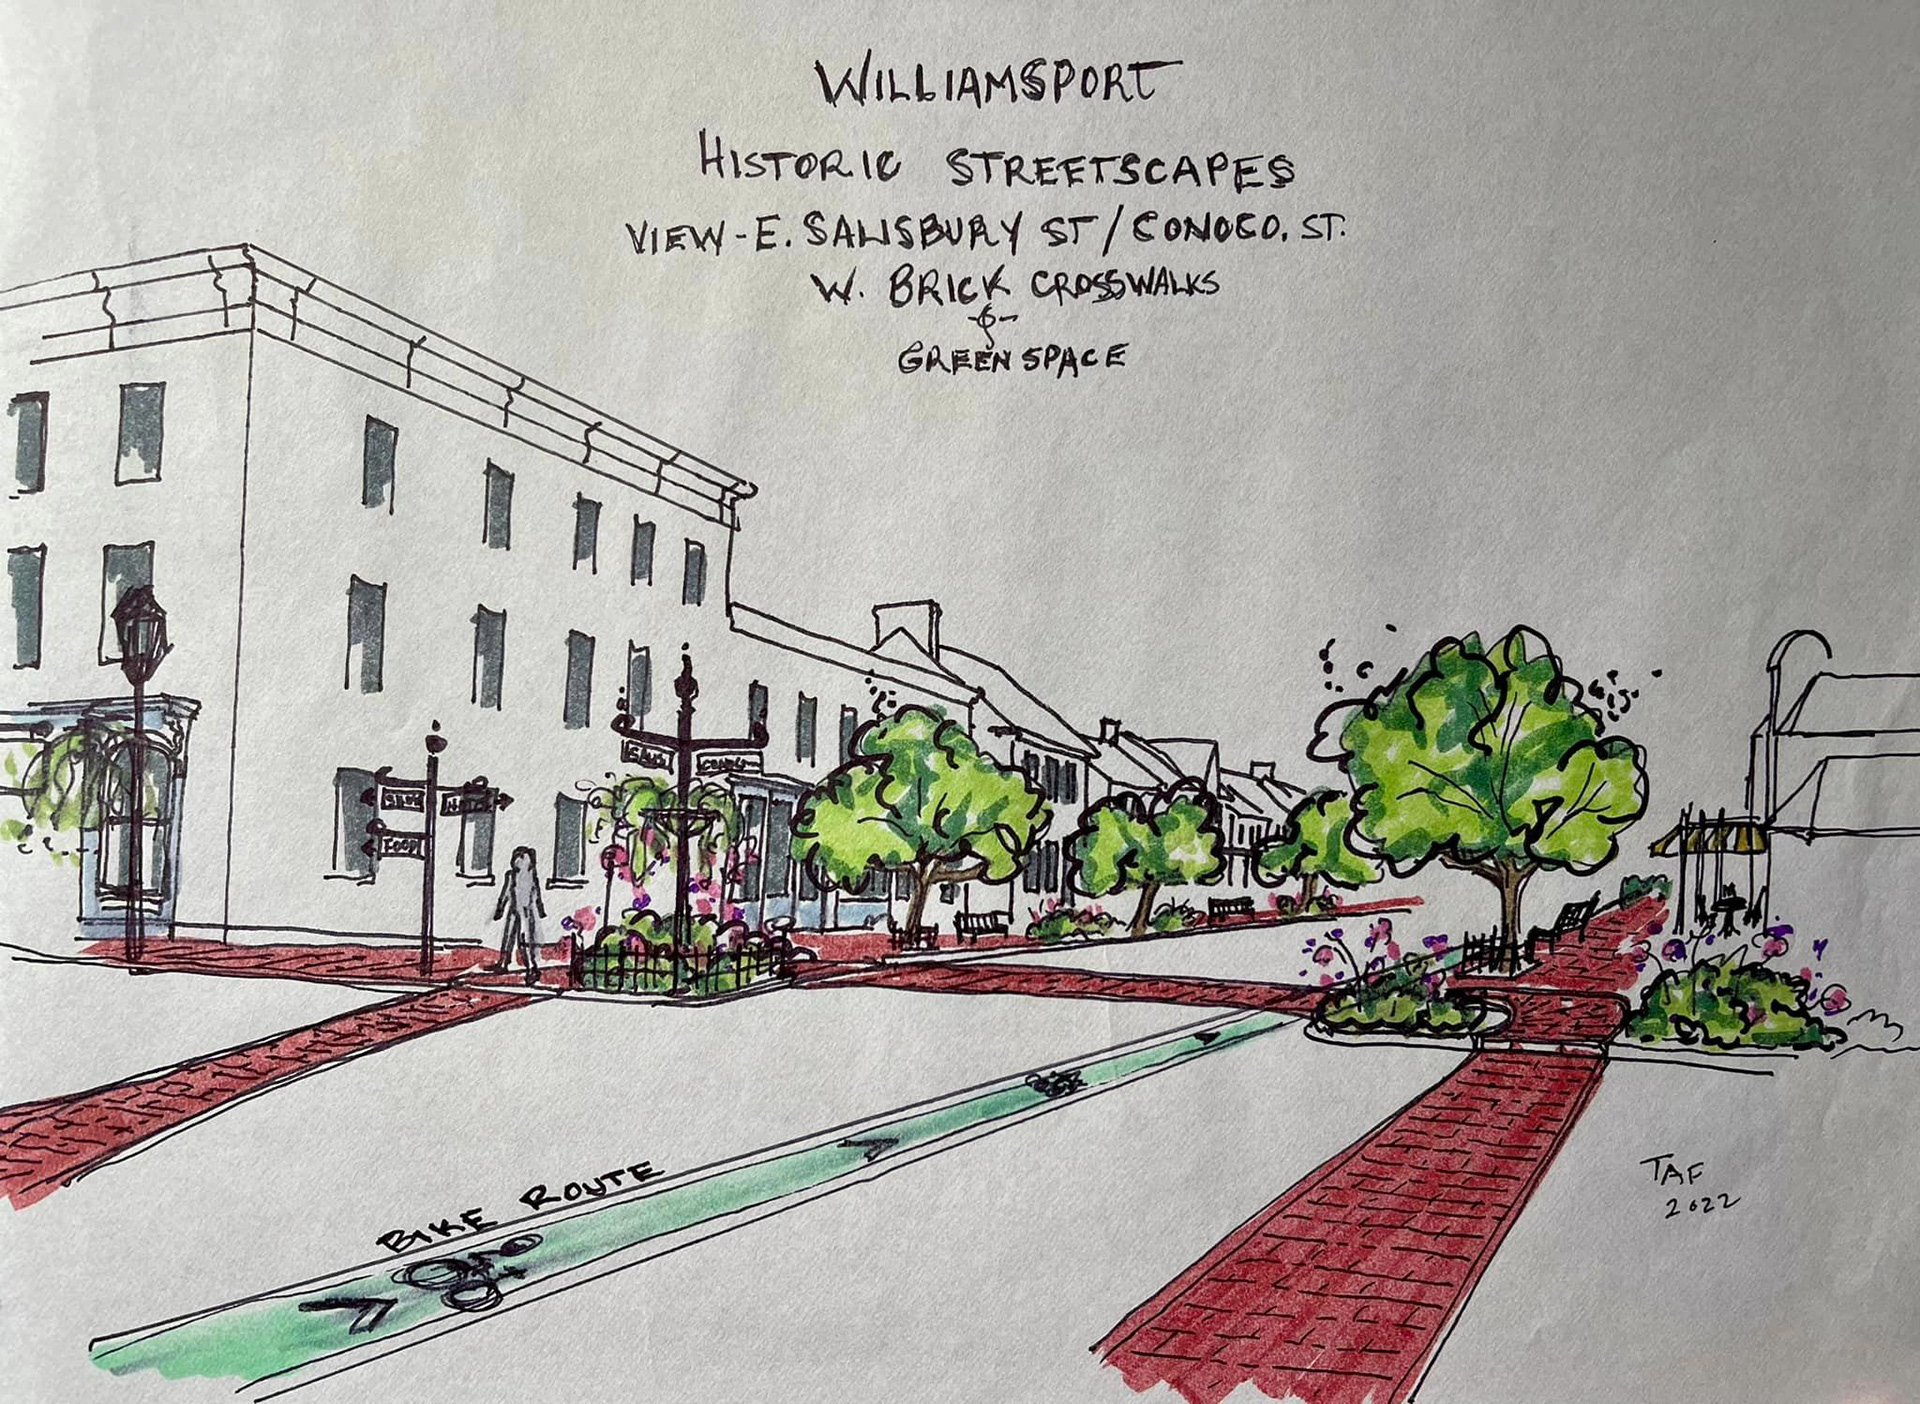 WILLIAMSPORT
HISTORIC STREETSCAPES
VIEW - E. SALISBURY ST / CONOCO. ST.
W. BRICK CROSSWALKS
&
GREEN SPACE
FOOD
BIKE ROUTE
TAF
2022